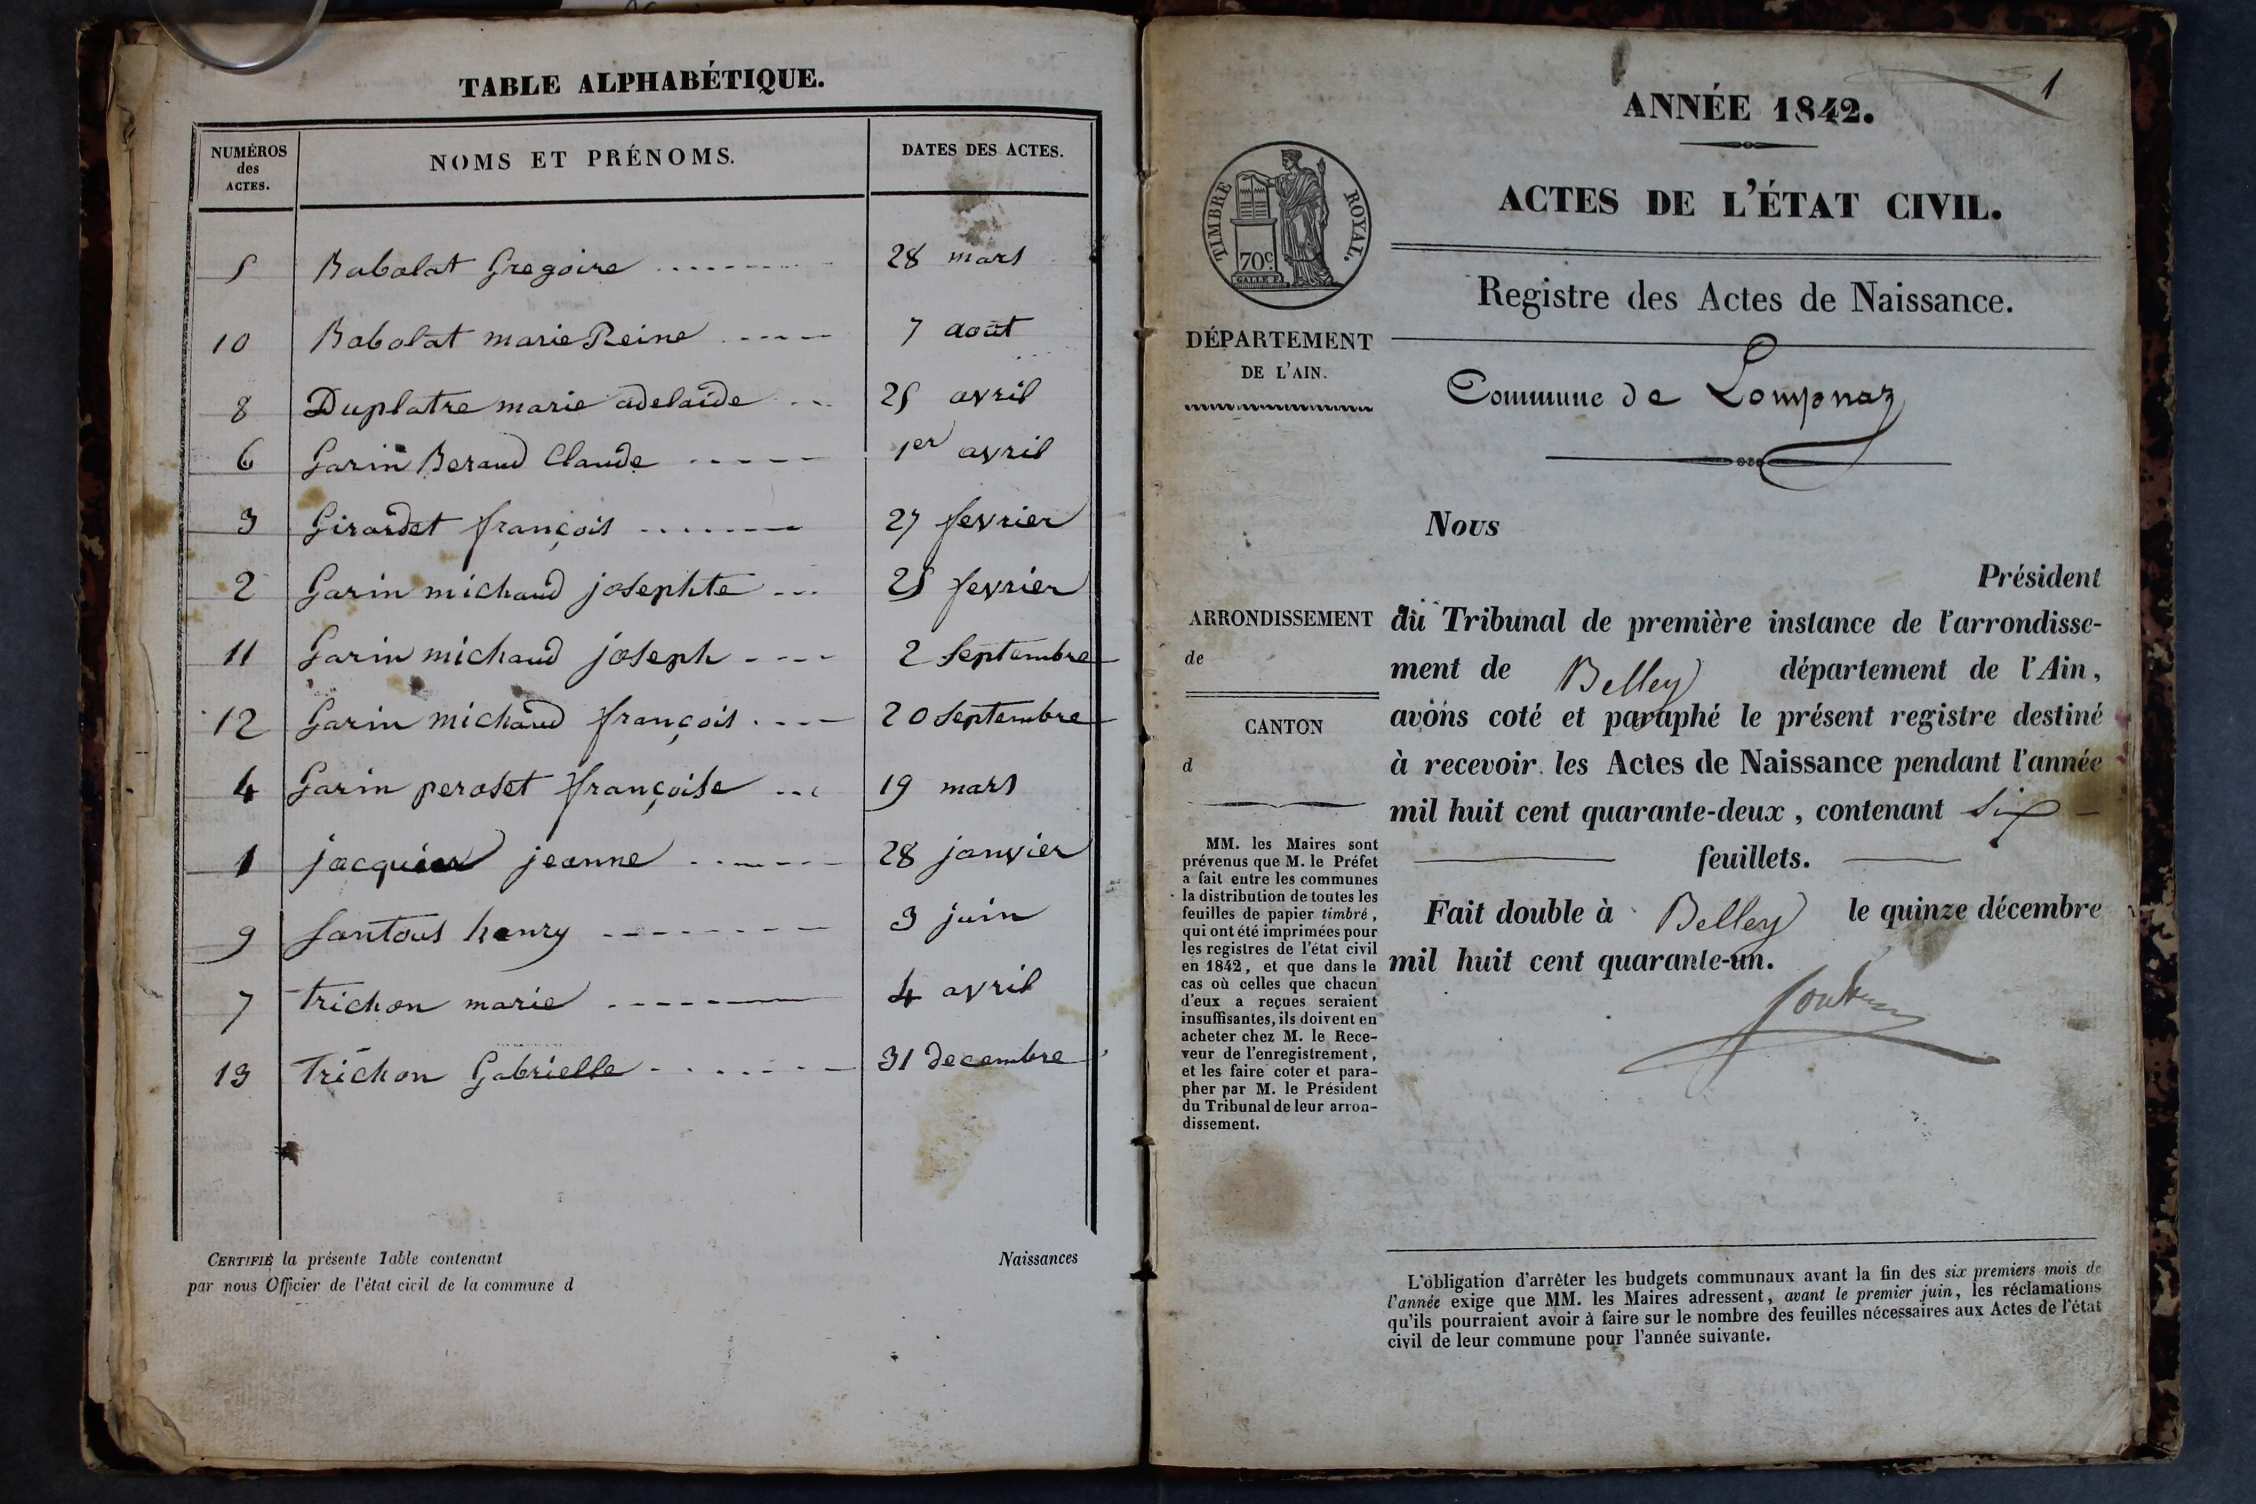 TABLE ALPHABÉTIQUE.
NUMÉROS des ACTES. NOMS ET PRÉNOMS. DATES DES ACTES.
5 Babolat Gregoire 28 mars
10 Babolat marie Reine 7 août
8 Duplatre marie adelaïde 25 avril
6 Garin Beraud Claude 1er avril
3 Girardet françois 27 fevrier
2 Garin michaud josephte 25 fevrier
11 Garin michaud joseph 2 Septembre
12 Garin michaud françois 20 Septembre
4 Garin peroset françoise 19 mars
1 jacquier jeanne 28 janvier
9 Santous henry 3 juin
7 trichon marie 4 avril
13 trichon Gabrielle 31 decembre
CERTIFIÉ la présente Table contenant Naissances
par nous Officier de l'état civil de la commune d
1
ANNÉE 1842.
ACTES DE L'ÉTAT CIVIL.
TIMBRE ROYAL.
70c
GALLE F.
Registre des Actes de Naissance.
DÉPARTEMENT
DE L'AIN.
Commune de Lompnaz
Nous
Président
ARRONDISSEMENT
de
CANTON
d
du Tribunal de première instance de l'arrondisse-
ment de Belley département de l'Ain,
avons coté et paraphé le présent registre destiné
à recevoir les Actes de Naissance pendant l'année
mil huit cent quarante-deux, contenant six
feuillets.
Fait double à Belley le quinze décembre
mil huit cent quarante-un.
MM. les Maires sont
prévenus que M. le Préfet
a fait entre les communes
la distribution de toutes les
feuilles de papier timbré,
qui ont été imprimées pour
les registres de l'état civil
en 1842, et que dans le
cas où celles que chacun
d'eux a reçues seraient
insuffisantes, ils doivent en
acheter chez M. le Rece-
veur de l'enregistrement,
et les faire coter et para-
pher par M. le Président
du Tribunal de leur arron-
dissement.
L'obligation d'arrêter les budgets communaux avant la fin des six premiers mois de
l'année exige que MM. les Maires adressent, avant le premier juin, les réclamations
qu'ils pourraient avoir à faire sur le nombre des feuilles nécessaires aux Actes de l'état
civil de leur commune pour l'année suivante.